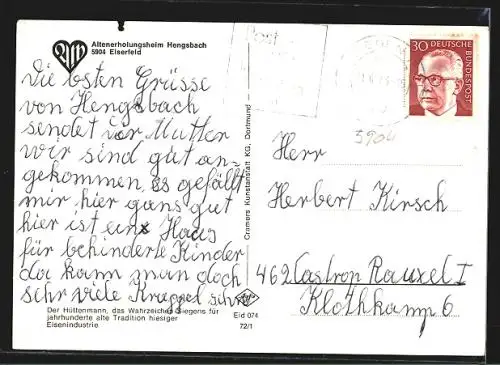 Altenerholungsheim Hengsbach
5904 Eiserfeld
Die bsten Grüsse
von Hengsbach
sendet dir Mutter
wir sind gut an-
gekommen, es gefällt
mir hier ganz gut
hier ist ein Haus
für behinderte Kinder
da kann man doch
sehr viele Krüppel sehn
Der Hüttenmann, das Wahrzeichen Siegens für
jahrhunderte alte Tradition hiesiger
Eisenindustrie
Eid 074
72/1
Cramers Kunstanstalt KG, Dortmund
Post
30 DEUTSCHE
BUNDESPOST
5904
Herr
Herbert Kirsch
462 Castrop Rauxel I
Klothkamp 6